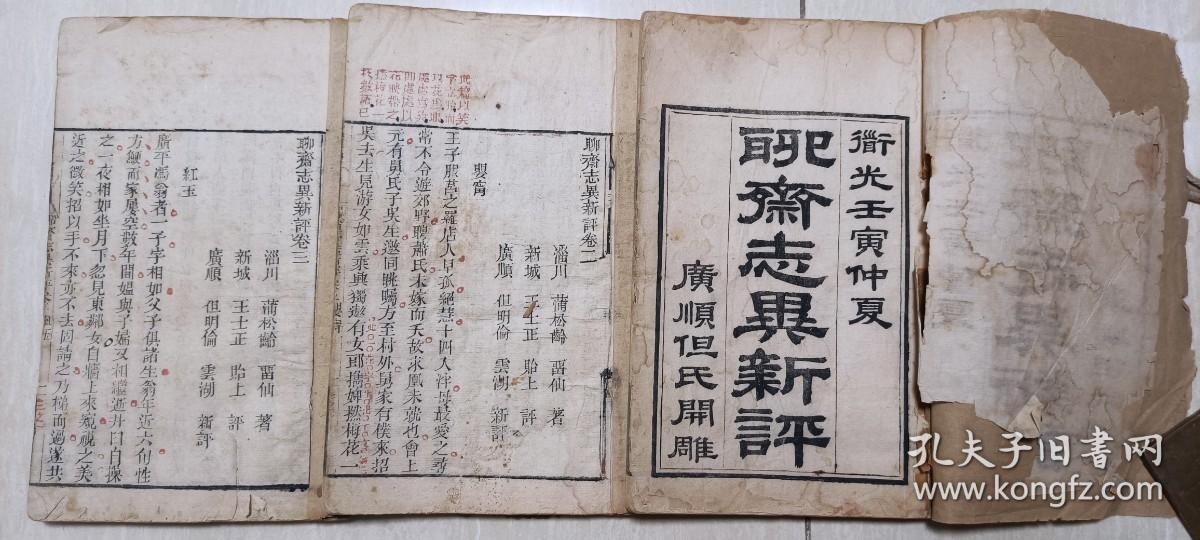 衜光壬寅仲夏
聊齋志異新評
廣順但氏開雕
聊齋志異新評卷二
淄川 蒲松齡 畱仙 著
新城 王士正 貽上 評
廣順 但明倫 雲湖 新評
嬰甯
王子服莒之羅店人早孤絕慧十四入泮母最愛之尋
常不令遊郊野聘蕭氏未嫁而夭故求凰未就也會上
元有舅氏子吳生邀同眺矚方至村外舅家有僕來招
吳去生見游女如雲乘興獨遨有女郎攜婢撚梅花一
此篇以笑
字立胎而
以花爲眼
處處寫笑
卽處處以
花映帶之
撚梅花一
枝數語已
聊齋志異新評卷三
淄川 蒲松齡 畱仙 著
新城 王士正 貽上 評
廣順 但明倫 雲湖 新評
紅玉
廣平馮翁者一子字相如父子俱諸生翁年近六旬性
方鯁而家屢空數年間媼與子婦又相繼逝井臼自操
之一夜相如坐月下忽見東鄰女自牆上來窺視之美
近之微笑招以手不來亦不去固請之乃梯而過遂共
孔夫子旧书网
www.kongfz.com